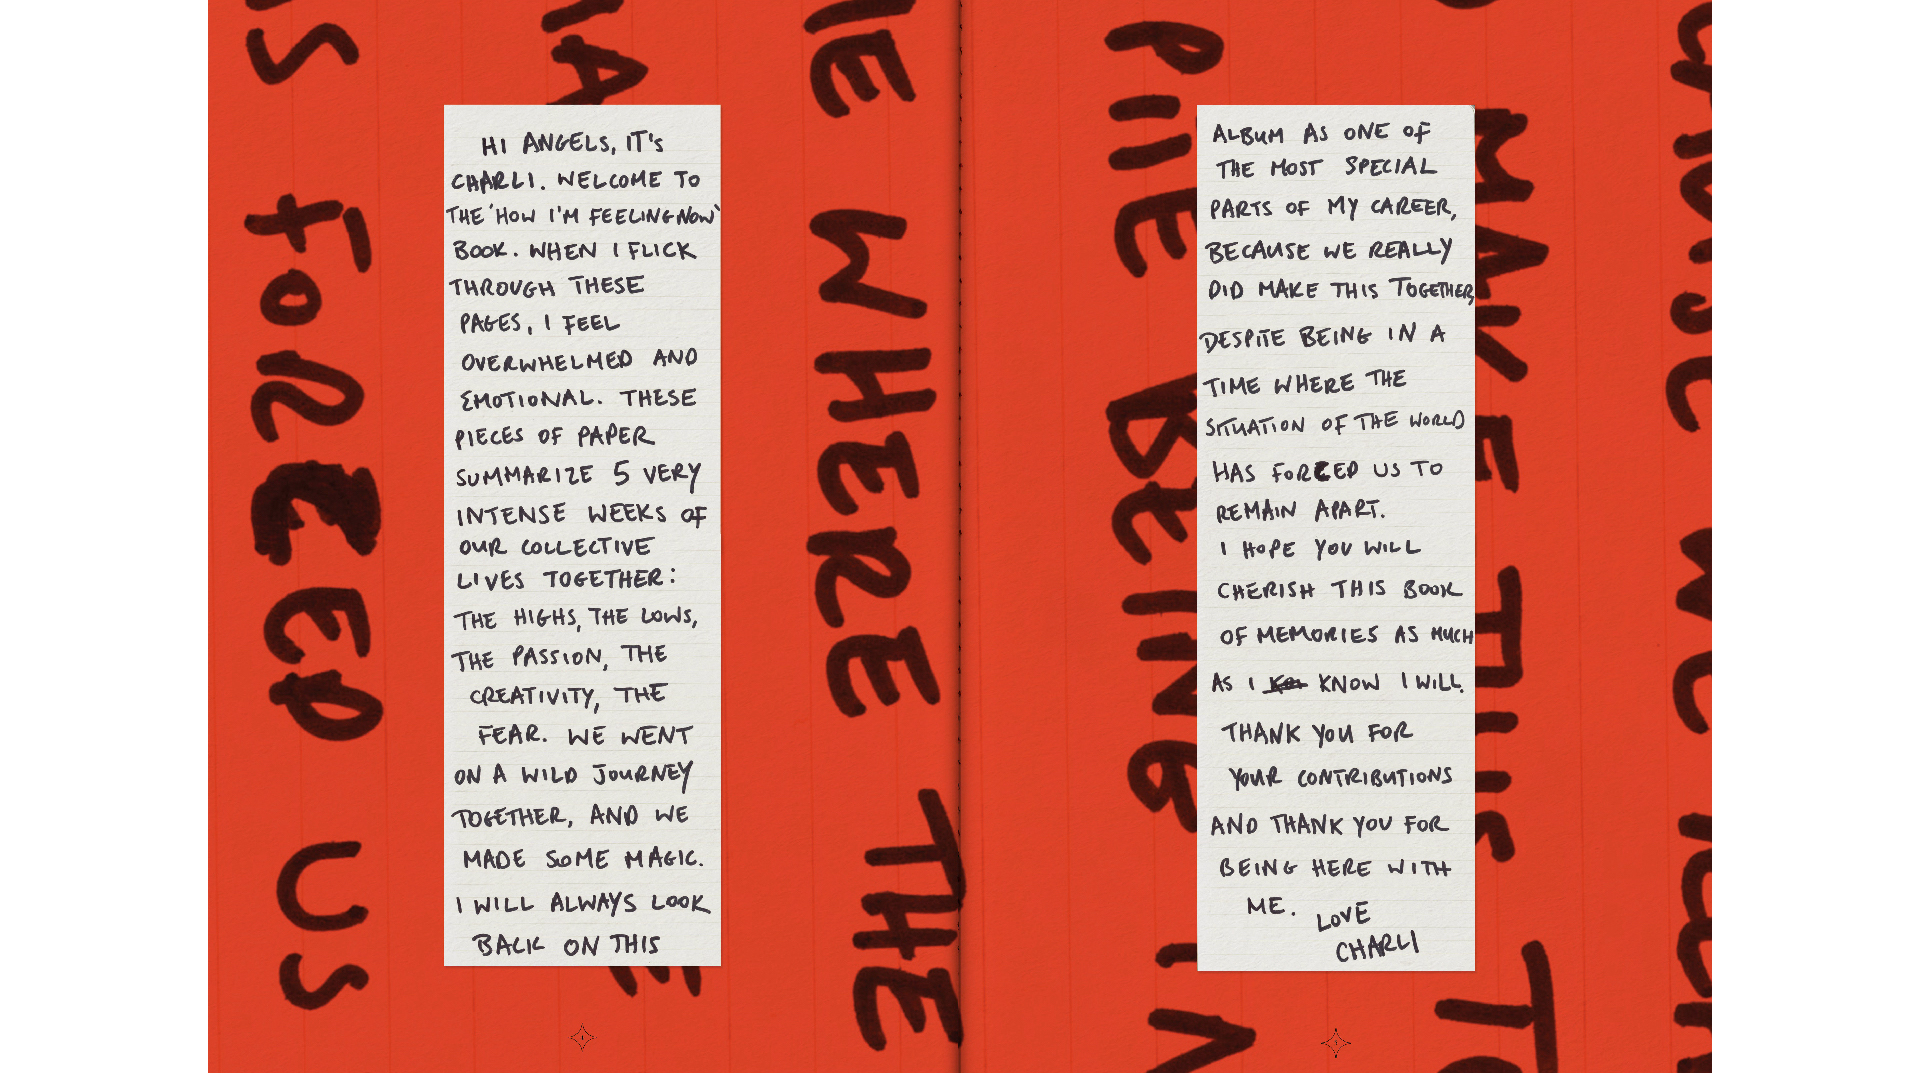 HI ANGELS, IT'S
CHARLI. WELCOME TO
THE 'HOW I'M FEELING NOW'
BOOK. WHEN I FLICK
THROUGH THESE
PAGES, I FEEL
OVERWHELMED AND
EMOTIONAL. THESE
PIECES OF PAPER
SUMMARIZE 5 VERY
INTENSE WEEKS OF
OUR COLLECTIVE
LIVES TOGETHER:
THE HIGHS, THE LOWS,
THE PASSION, THE
CREATIVITY, THE
FEAR. WE WENT
ON A WILD JOURNEY
TOGETHER, AND WE
MADE SOME MAGIC.
I WILL ALWAYS LOOK
BACK ON THIS
ALBUM AS ONE OF
THE MOST SPECIAL
PARTS OF MY CAREER,
BECAUSE WE REALLY
DID MAKE THIS TOGETHER,
DESPITE BEING IN A
TIME WHERE THE
SITUATION OF THE WORLD
HAS FORCED US TO
REMAIN APART.
I HOPE YOU WILL
CHERISH THIS BOOK
OF MEMORIES AS MUCH
AS I KNOW I WILL.
THANK YOU FOR
YOUR CONTRIBUTIONS
AND THANK YOU FOR
BEING HERE WITH
ME.
LOVE
CHARLI
FORCED US
WHERE THE
BEING IN
MAKE THIS TO